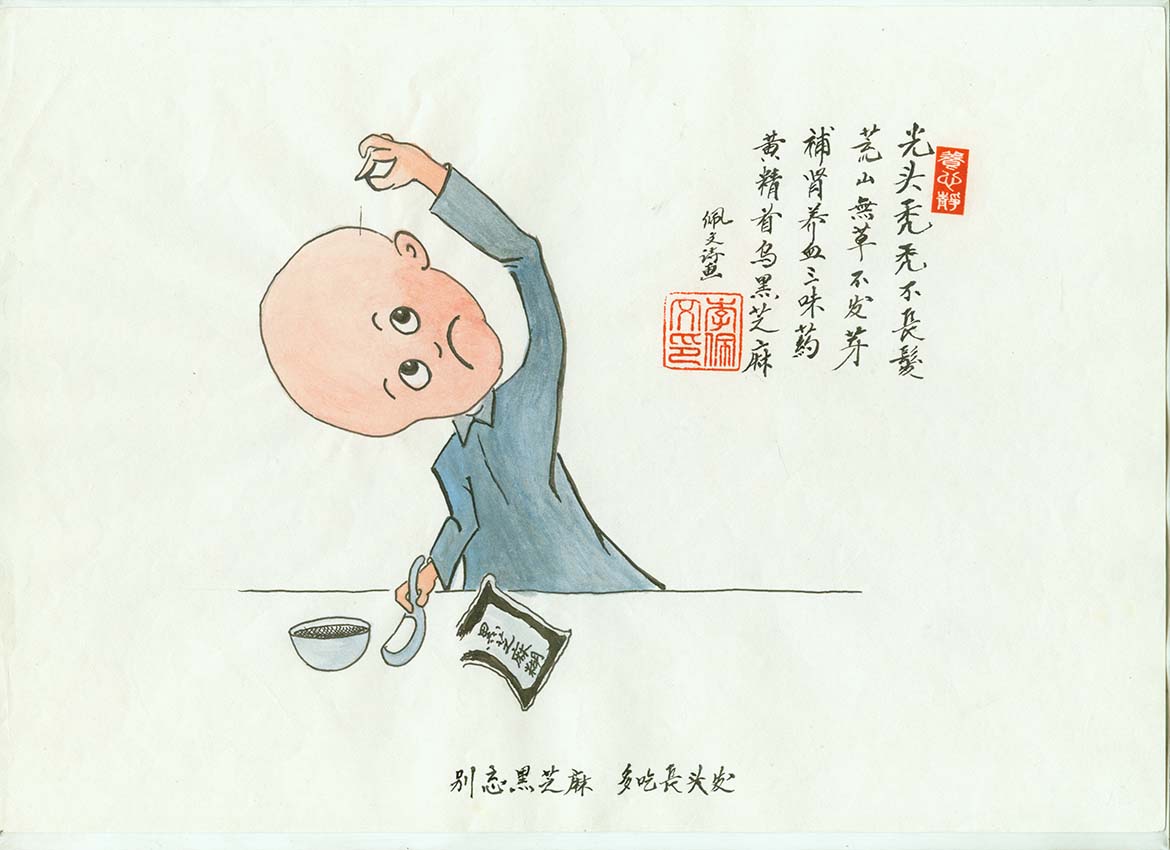 養心靜
光头秃秃不長髮
荒山無草不发芽
補肾养血三味药
黄精首乌黑芝麻
佩文诗画
李佩文印
黑芝麻糊
别忘黑芝麻 多吃長头发